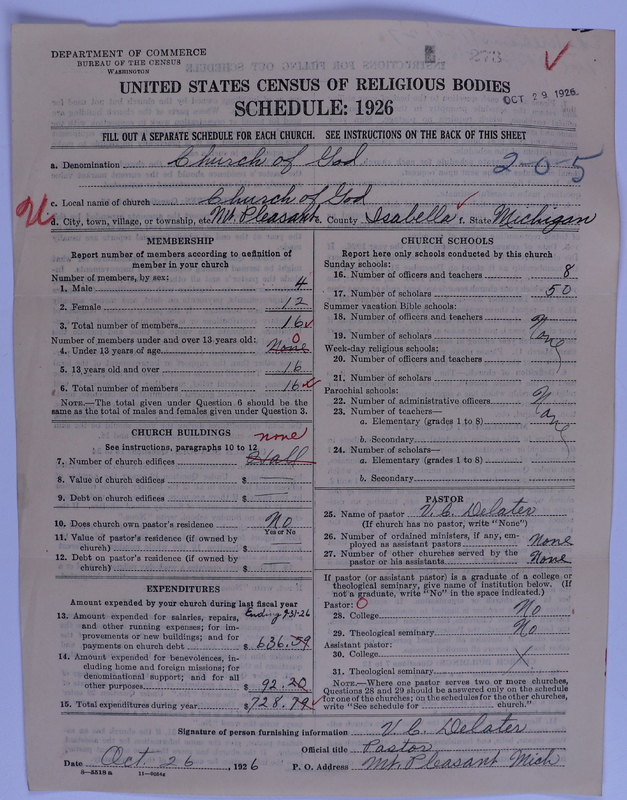 DEPARTMENT OF COMMERCE
BUREAU OF THE CENSUS
WASHINGTON
273
UNITED STATES CENSUS OF RELIGIOUS BODIES
OCT 29 1926
SCHEDULE: 1926
FILL OUT A SEPARATE SCHEDULE FOR EACH CHURCH. SEE INSTRUCTIONS ON THE BACK OF THIS SHEET
a. Denomination Church of God
2-0-5
c. Local name of church Church of God
d. City, town, village, or township, etc. Mt. Pleasant e. County Isabella f. State Michigan
MEMBERSHIP
Report number of members according to definition of
member in your church
Number of members, by sex:
1. Male 4
2. Female 12
3. Total number of members 16
Number of members under and over 13 years old: 0
4. Under 13 years of age None
5. 13 years old and over 16
6. Total number of members 16
NOTE.—The total given under Question 6 should be
same as the total of males and females given under Question 3.
CHURCH BUILDINGS none
See instructions, paragraphs 10 to 12
7. Number of church edifices Hall
8. Value of church edifices $ —
9. Debt on church edifices $ —
10. Does church own pastor's residence No
Yes or No
11. Value of pastor's residence (if owned by
church) $ —
12. Debt on pastor's residence (if owned by
church) $ —
EXPENDITURES
Amount expended by your church during last fiscal year
13. Amount expended for salaries, repairs,
and other running expenses; for im-
provements or new buildings; and for
payments on church debt $ 636.59
14. Amount expended for benevolences, in-
cluding home and foreign missions; for
denominational support; and for all
other purposes 92.20
15. Total expenditures during year $ 728.79
CHURCH SCHOOLS
Report here only schools conducted by this church
Sunday schools:
16. Number of officers and teachers 8
17. Number of scholars 50
Summer vacation Bible schools:
18. Number of officers and teachers None
19. Number of scholars
Week-day religious schools:
20. Number of officers and teachers
21. Number of scholars
Parochial schools:
22. Number of administrative officers None
23. Number of teachers—
a. Elementary (grades 1 to 8)
b. Secondary
24. Number of scholars—
a. Elementary (grades 1 to 8)
b. Secondary
PASTOR
25. Name of pastor V. C. Delater
(If church has no pastor, write "None")
26. Number of ordained ministers, if any, em-
ployed as assistant pastors None
27. Number of other churches served by the
pastor or his assistants None
If pastor (or assistant pastor) is a graduate of a college or
theological seminary, give name of institution below. (If
not a graduate, write "No" in the space indicated.)
Pastor: 0
28. College No
29. Theological seminary No
Assistant pastor:
30. College X
31. Theological seminary
NOTE.—Where one pastor serves two or more churches,
Questions 28 and 29 should be answered only on the schedule
for one of the churches; on the schedules for the other churches,
write "See schedule for church."
Signature of person furnishing information V. C. Delater
Official title Pastor
Date Oct. 26, 1926 P. O. Address Mt. Pleasant Mich